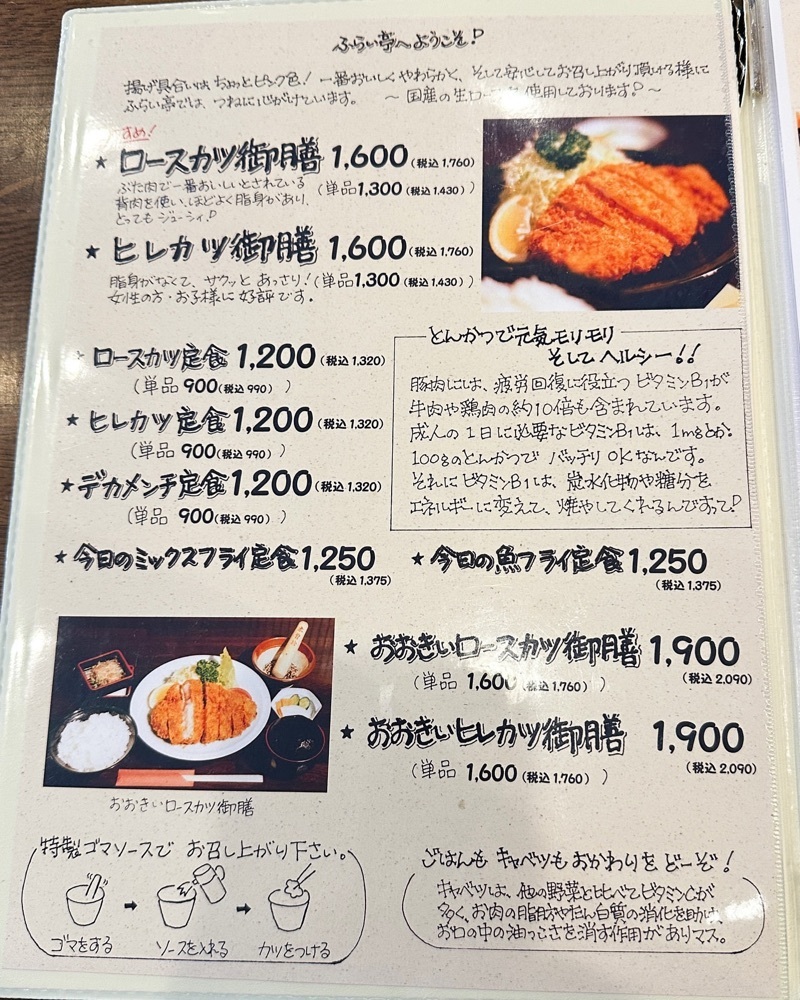 ふらい亭へようこそ!
揚げ具合いは ちょっとピンク色! 一番おいしく やわらかく、そして安心してお召し上がり頂ける様に
ふらい亭では、つねに心がけています。 〜 国産の生ロースを使用しております! 〜
すめ!
★ ロースカツ御膳 1,600(税込 1,760)
ぶた肉で一番おいしいとされている (単品1,300(税込 1,430))
背肉を使い、ほどよく脂身があり、
とっても ジューシィ!
★ ヒレカツ御膳 1,600(税込 1,760)
脂身がなくて、サクッと あっさり! (単品1,300(税込 1,430))
女性の方・お子様に 好評です。
★ ロースカツ定食 1,200(税込 1,320)
(単品 900(税込 990))
★ ヒレカツ定食 1,200(税込 1,320)
(単品 900(税込 990))
★ デカメンチ定食 1,200(税込 1,320)
(単品 900(税込 990))
とんかつで元気モリモリ
そして ヘルシー!!
豚肉には、疲労回復に役立つ ビタミンB1が
牛肉や鶏肉の約10倍も含まれています。
成人の 1日に必要なビタミンB1は、1mgとか。
100gのとんかつで バッチリ OKなんです。
それに ビタミンB1は、炭水化物や糖分を
エネルギーに変えて、燃やしてくれるんですって!
★ 今日のミックスフライ定食 1,250
(税込 1,375)
★ 今日の魚フライ定食 1,250
(税込 1,375)
★ おおきいロースカツ御膳 1,900
(単品 1,600(税込 1,760)) (税込 2,090)
★ おおきいヒレカツ御膳 1,900
(単品 1,600(税込 1,760)) (税込 2,090)
おおきいロースカツ御膳
特製ゴマソースで お召し上がり下さい。
ゴマをする ➡ ソースを入れる ➡ カツをつける
ごはんも キャベツも おかわりを どーぞ!
キャベツは、他の野菜と比べてビタミンCが
多く、お肉の脂肪やたん白質の消化を助け、
お口の中の油っこさを消す作用がありマス。